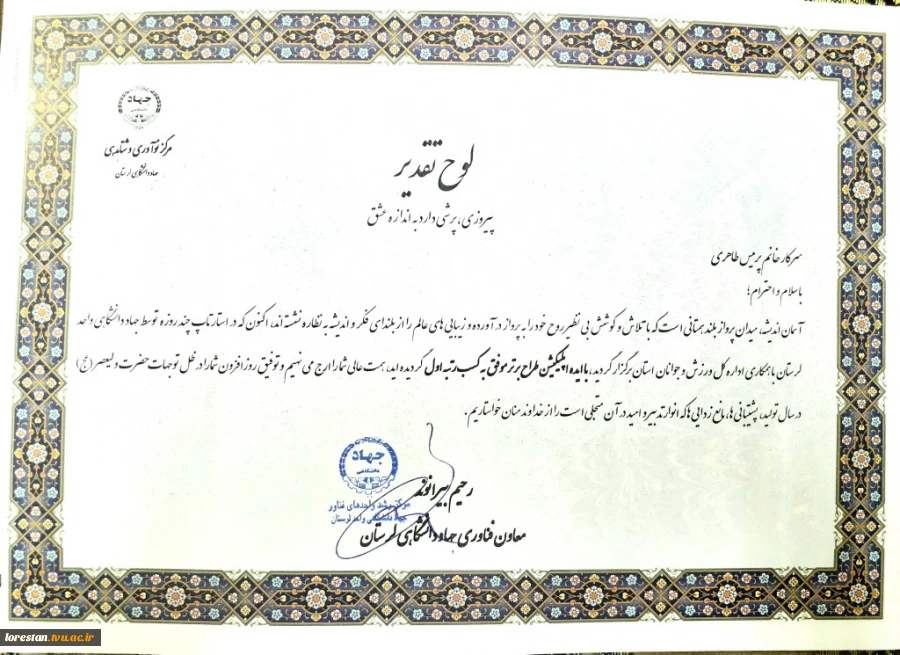 جهاد
دانشگاهی
مرکز نوآوری و شتابدهی
جهاد دانشگاهی لرستان
لوح تقدیر
پیروزی، پرشی دارد به اندازه عشق
سرکار خانم پرمیس طاهری
با سلام و احترام؛
آسمان اندیشه، میدان پرواز بلند همتانی است که با تلاش و کوشش بی نظیر روح خود را به پرواز در آورده و زیبایی های عالم را از بلندای فکر و اندیشه به نظاره نشسته اند، اکنون که در استارتاپ چند روزه توسط جهاد دانشگاهی واحد
لرستان با همکاری اداره کل ورزش و جوانان استان برگزار گردید، با ایده اپلیکیشن طراح برتر موفق به کسب رتبه اول گردیده اید، همت عالی شما را ارج می نهیم و توفیق روز افزون شما را در ظل توجهات حضرت ولیعصر(عج)
در سال تولید، پشتیبانی ها، مانع زدایی ها که انوار تدبیر و امید در آن متجلی است را از خداوند منان خواستاریم.
جهاد
دانشگاهی
مرکز رشد واحدهای فناور
جهاد دانشگاهی واحد لرستان
رحیم بیرانوند
معاون فناوری جهاد دانشگاهی لرستان
lorestan.tvu.ac.ir